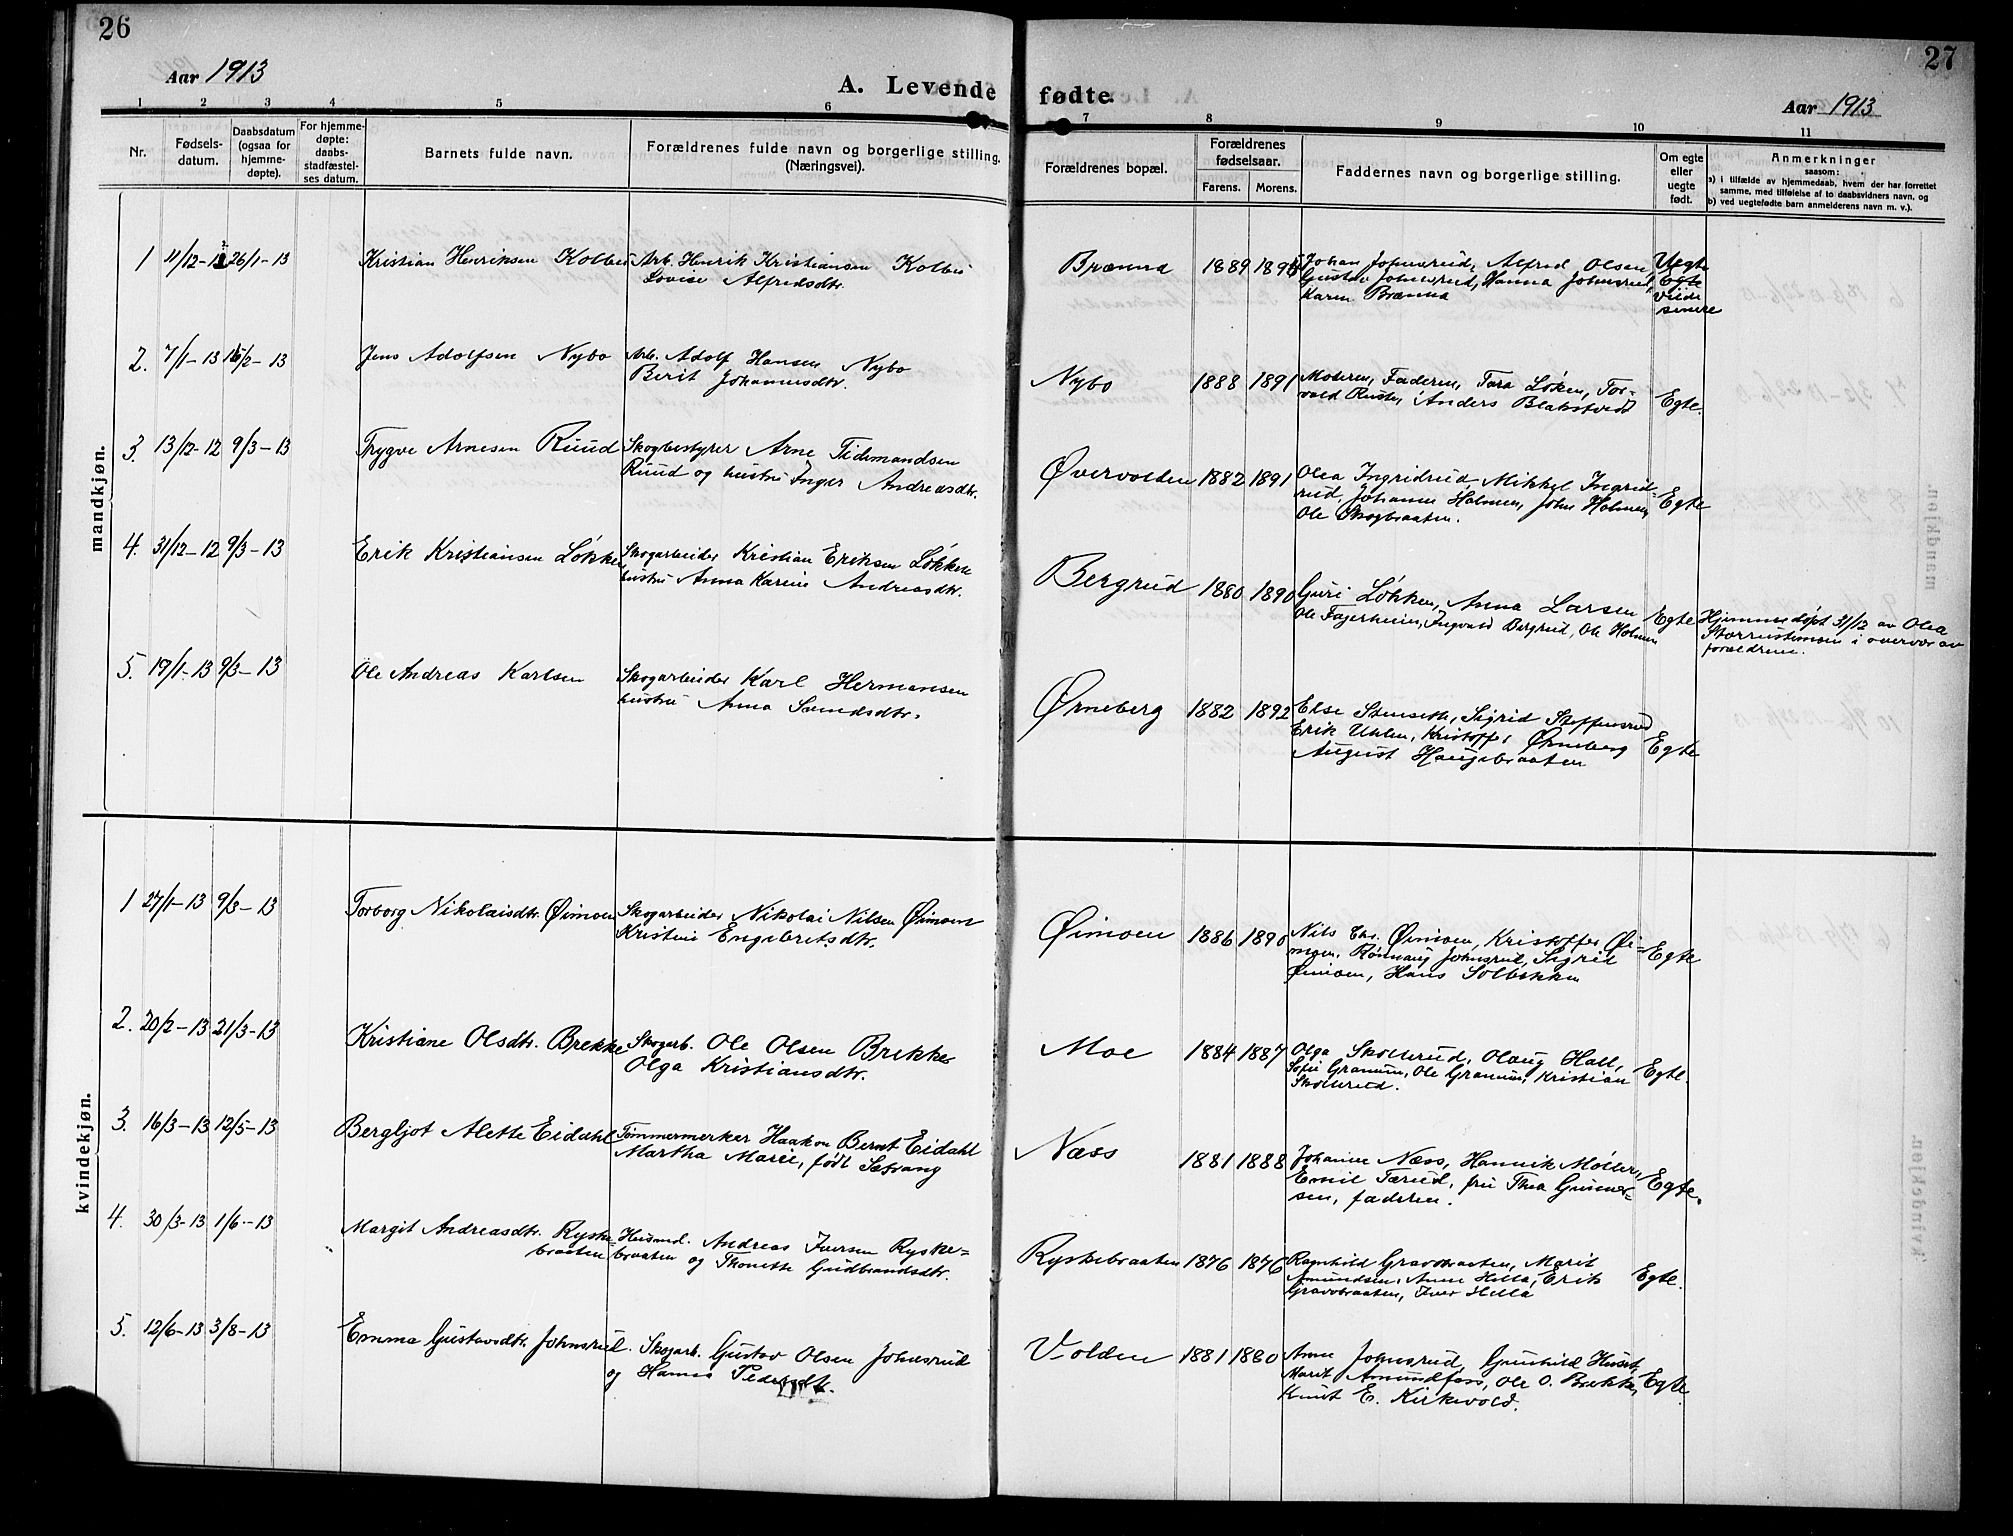 26
Aar 1913
A. Levende fødte.
27
Aar 1913
1 2 3 4 5 6 7 8 9 10 11
Nr.
Fødsels-
datum.
Daabsdatum
(ogsaa for
hjemme-
døpte).
For hjemme-
døpte:
daabs-
stadfæstel-
ses datum.
Barnets fulde navn.
Forældrenes fulde navn og borgerlige stilling.
(Næringsvei).
Forældrenes bopæl.
Forældrenes
fødselsaar.
Farens. Morens.
Faddernes navn og borgerlige stilling.
Om egte
eller
uegte
født.
Anmerkninger
saasom:
a) i tilfælde av hjemmedaab, hvem der har forrettet
samme, med tilføielse af to daabsvidners navn, og
b) ved uegtefødte barn anmelderens navn m. v.).
mandkjøn.
1 11/12-12 26/1-13 Kristian Henriksen Kolbu Arb. Henrik Kristiansen Kolbu
Lovise Alfredsdtr.
Brænna 1889 Johan Johnsrud, Alfred Olsen, Uegte
Gustav Johnsrud, Hanna Johnsrud, Egte
Karen Brænna
senere
2. 7/1-13 16/2-13 Jens Adolfsen Nybo Arb. Adolf Hansen Nybo
Berit Johannesdtr.
Nybo 1888 1891 Moderen, Faderen, Tora Løken, Tor-
vald Ruste, Anders Blakstved Egte.
3. 13/12-12 9/3-13 Trygve Arnesen Ruud Skogbestyrer Arne Tidemandsen
Ruud og hustru Inger Andreasdtr.
Øvervolden 1882 1891 Olea Ingridrud, Mikkel Ingrid-
rud, Johanne Holmen, John Holmen, Egte
Ole Skogbraaten.
4. 31/12-12 9/3-13 Erik Kristiansen Løkken Skogarbeider Kristian Eriksen Løkken
hustru Anna Karine Andreasdtr.
Bergrud 1880 1890 Guri Løkken, Anna Larsen
Ole Fagerheim, Ingvald Bergrud, Ole Holmen Egte Hjemmedøpt 31/12 av Olea
Størrustemoen i overvær av
forældrene.
5. 19/1-13 9/3-13 Ole Andreas Karlsen Skogarbeider Karl Hermansen
hustru Anna Svendsdtr.
Ørneberg 1882 1892 Else Stenseth, Sigrid Steffensrud
Erik Uhlen, Kristoffer Ørneberg Egte
August Haugsbraaten
kvindekjøn.
1 27/1-13 9/3-13 Torborg Nikolaisdtr. Øimoen Skogarbeider Nikolai Nilsen Øimoen
Kristine Engebretsdtr.
Øimoen 1886 1890 Nils Chr. Øimoen, Kristoffer Øi-
moen, Rønnaug Johnsrud, Sigrid Egte
Øimoen, Hans Solbakken
2. 20/2-13 21/3-13 Kristiane Olsdtr. Brekke Skogarb. Ole Olsen Brekke
Olga Kristiansdtr.
Moe 1884 1887 Olga Skollerud, Olaug Hall,
Sofie Granum, Ole Granum, Kristian Egte.
Skollerud.
3. 16/3-13 12/5-13 Bergljot Alette Eidahl Tømmermerker Haakon Bernt Eidahl
Martha Marie, født Sætrang
Næss 1881 1888 Johanne Næss, Henrik Møller,
Emil Tærud, fru Thea Gunner- Egte.
sen, faderen.
4. 30/3-13 1/6-13 Margit Andreasdtr. Ryske-
braaten Husmd. Andreas Iversen Ryske-
braaten og Thonette Gudbrandsdtr.
Ryskebraaten 1876 1876 Ragnhild Gravbraaten, Marit
Amundsen, Anne Hilla, Erik Egte.
Gravbraaten, Iver Hilla
5. 12/6-13 3/8-13 Emma Gustavsdtr. Johnsrud. Skogarb. Gustav Olsen Johnsrud
og Hanna Pedersdtr.
Volden 1881 1880 Anna Johnsrud, Gunhild Huset,
Marit Amundfoss, Ole O. Brekke, Egte.
Knut E. Kirkevold.